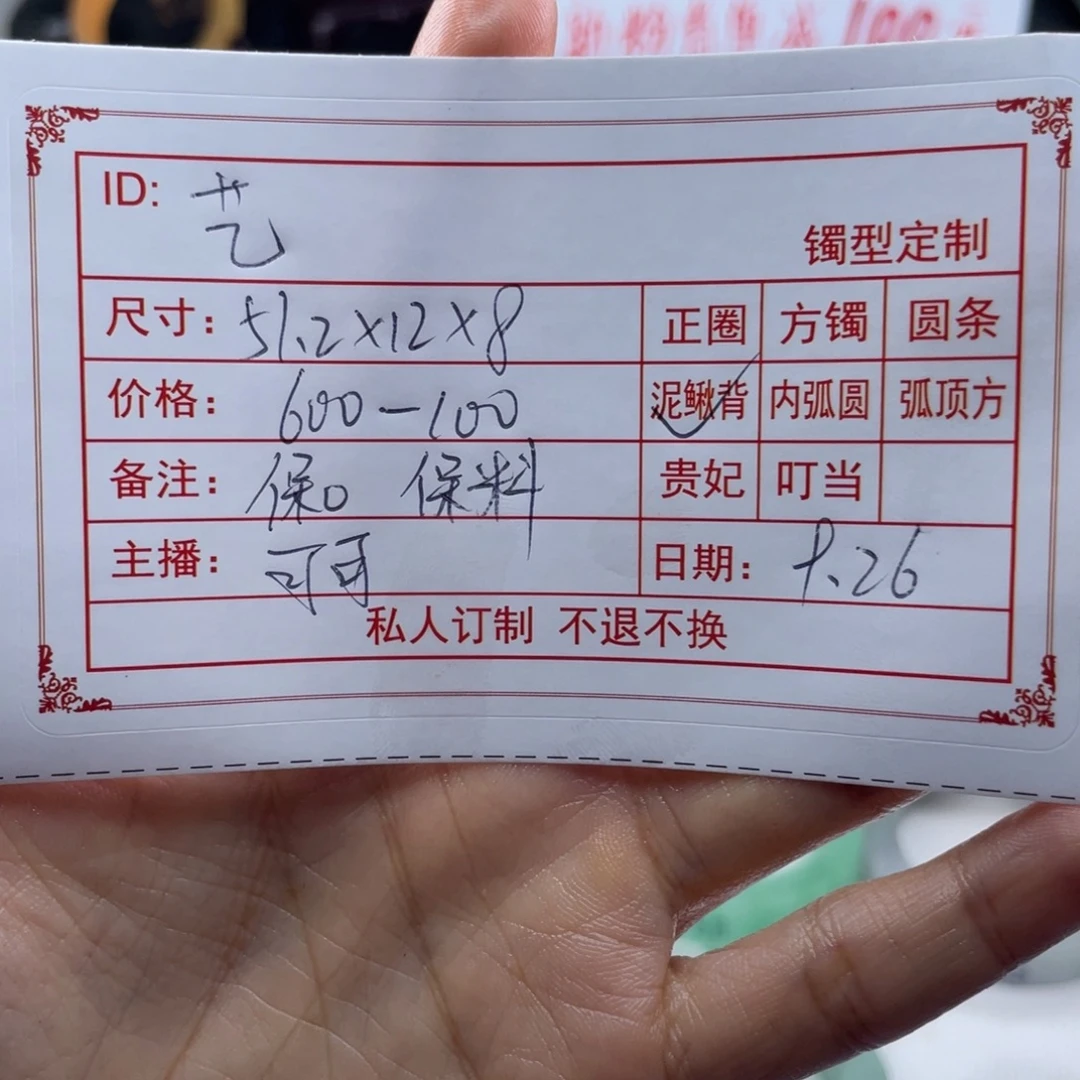 ID: 艺
镯型定制
尺寸: 51.2×12×8 正圈 方镯 圆条
价格: 600-100 泥鳅背 内弧圆 弧顶方
备注: 保口 保料 贵妃 叮当
主播: 可可 日期: 9.26
私人订制 不退不换